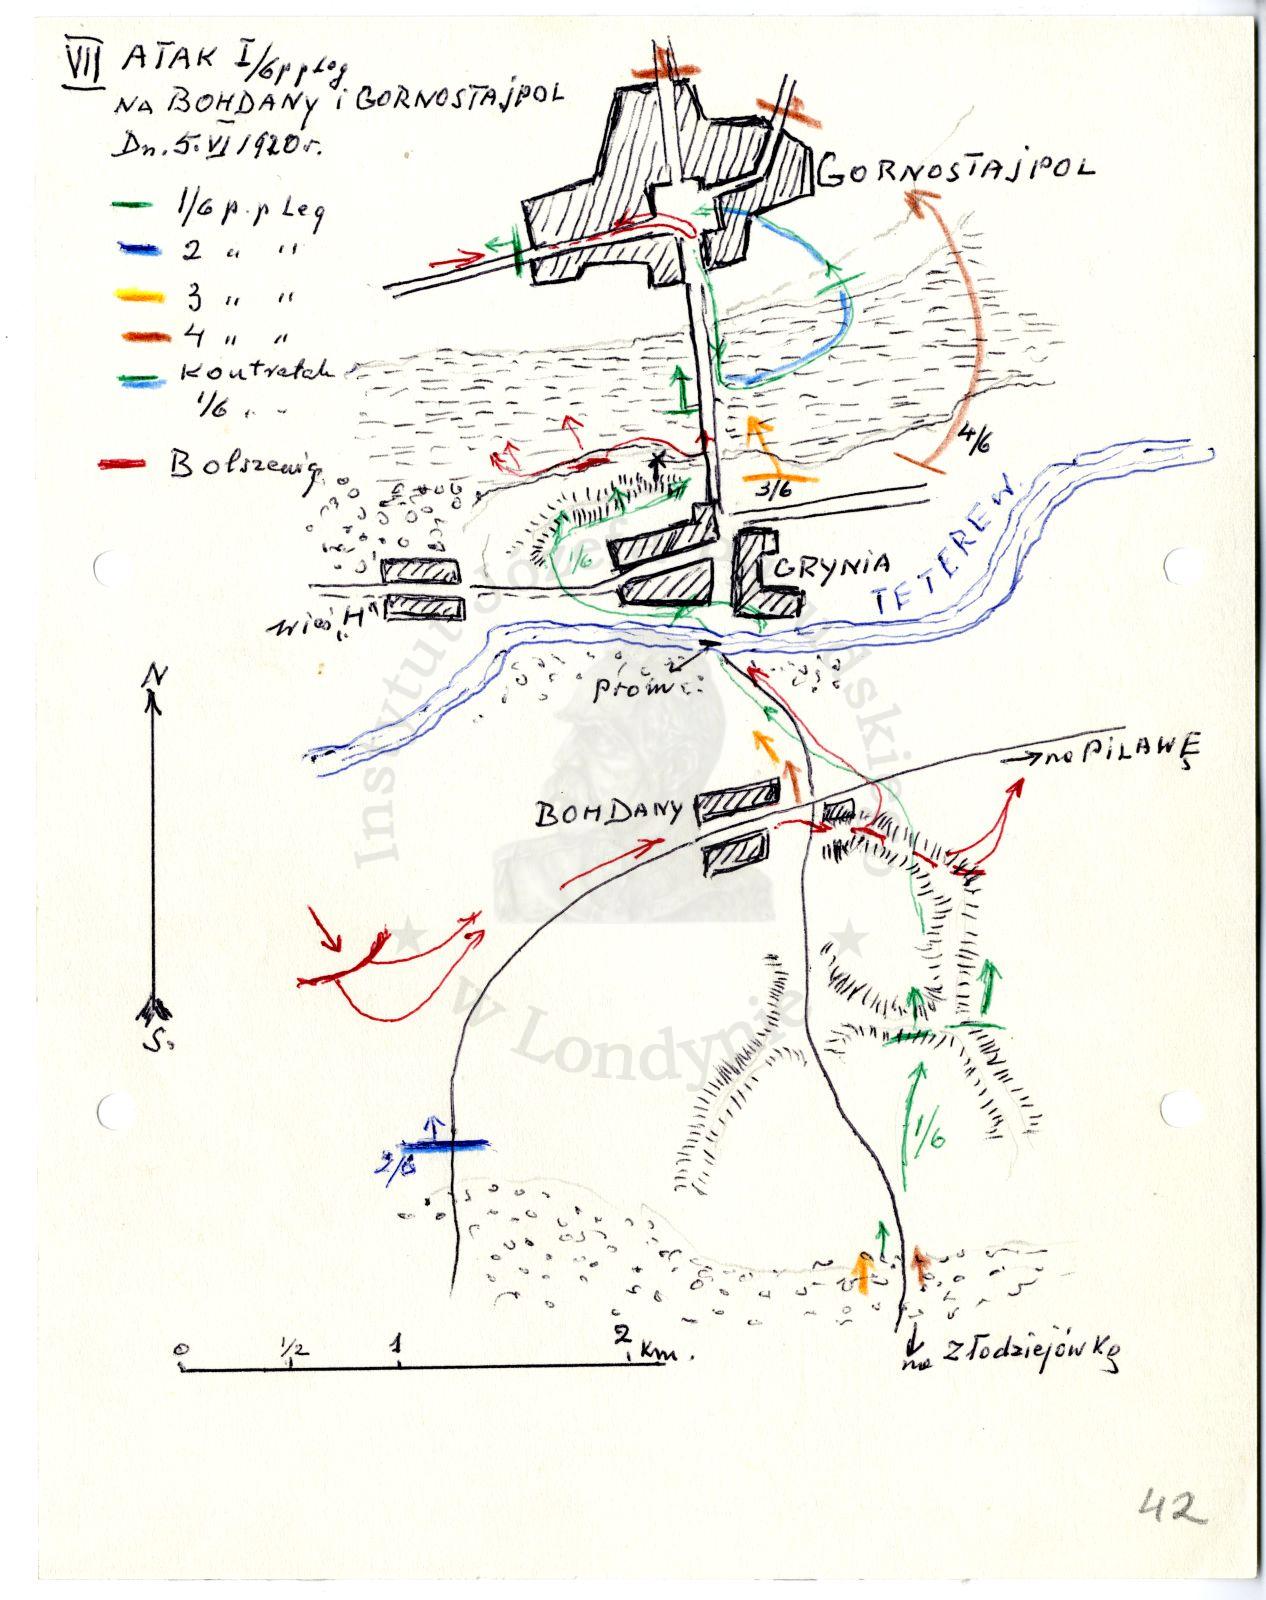 VII ATAK I/6 p p Leg
NA BOHDANY i GORNOSTAJPOL
Dn. 5. VI 1920 r.
1/6 p. p Leg
2 " "
3 " "
4 " "
Kontratak
1/6 " "
Bolszewicy
GORNOSTAJPOL
4/6
3/6
1/6
GRYNIA
TETEREW.
wieś "H"
prom
N
S.
na PILAWĘ
BOHDANY
1/6
2/6
0 1/2 1 2 Km.
na Złodziejówkę
42
Instytut Józefa Piłsudskiego
w Londynie